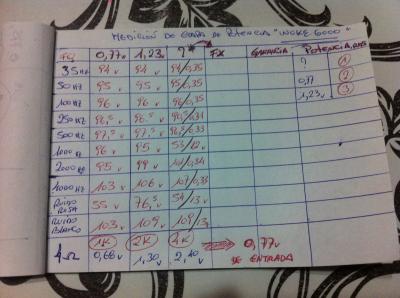 MEDICIÓN DE ETAPA DE POTENCIA "WOKE 6000"
FQ 0,77v 1,23v ?* FX GANANCIA POTENCIA RMS
35Hz 94v 94v 94/0,35 ? 1
50Hz 95v 95v 95/0,35 0,77 2
100Hz 96v 96v 96/0,35 1,23v 3
250Hz 96,5v 96,5v 96,5/0,31
500Hz 97,5v 97,5v
1000Hz 96v 95v 53/12v
2000Hz 95v 99v 101/0,34
1000Hz 103v 106v 107/0,33
RUIDO ROSA 55v 76,5v 54/13v
RUIDO BLANCO 103v 109v 109/13
1K 2K 4K 0,77v
4Ω 0,68v 1,30v 2,40v DE ENTRADA